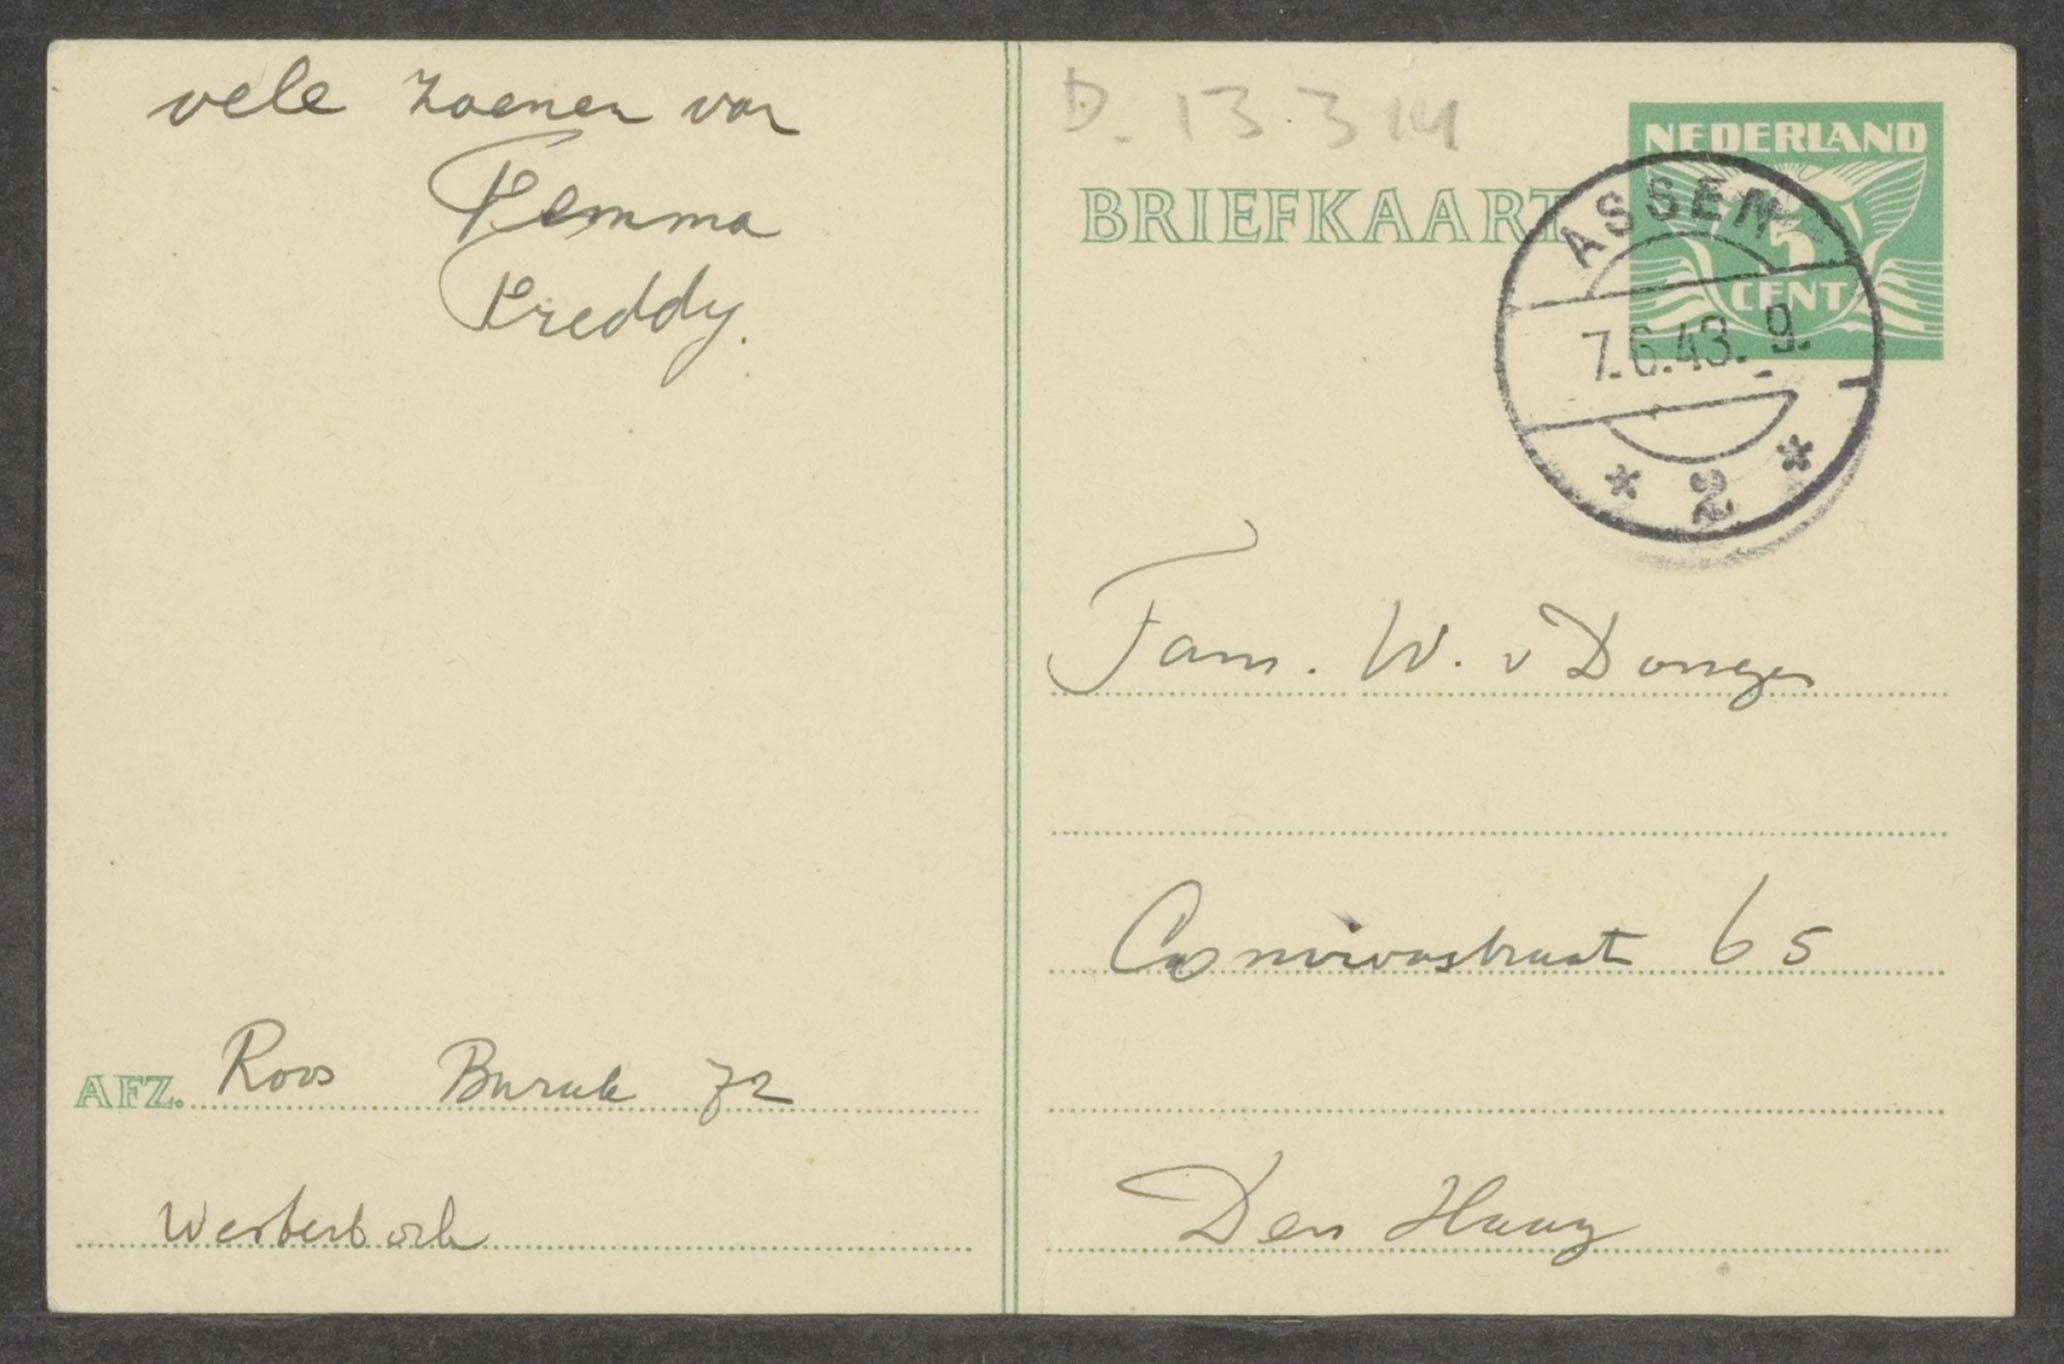 vele zoenen van
Femma
Freddy.
AFZ. Roos Barak 72
Westerbork
D. 13.3 14
BRIEFKAART
NEDERLAND
5
CENT
ASSEN
7.6.43. 9.
* 2 *
Fam. W. v Dongen
65
Den Haag